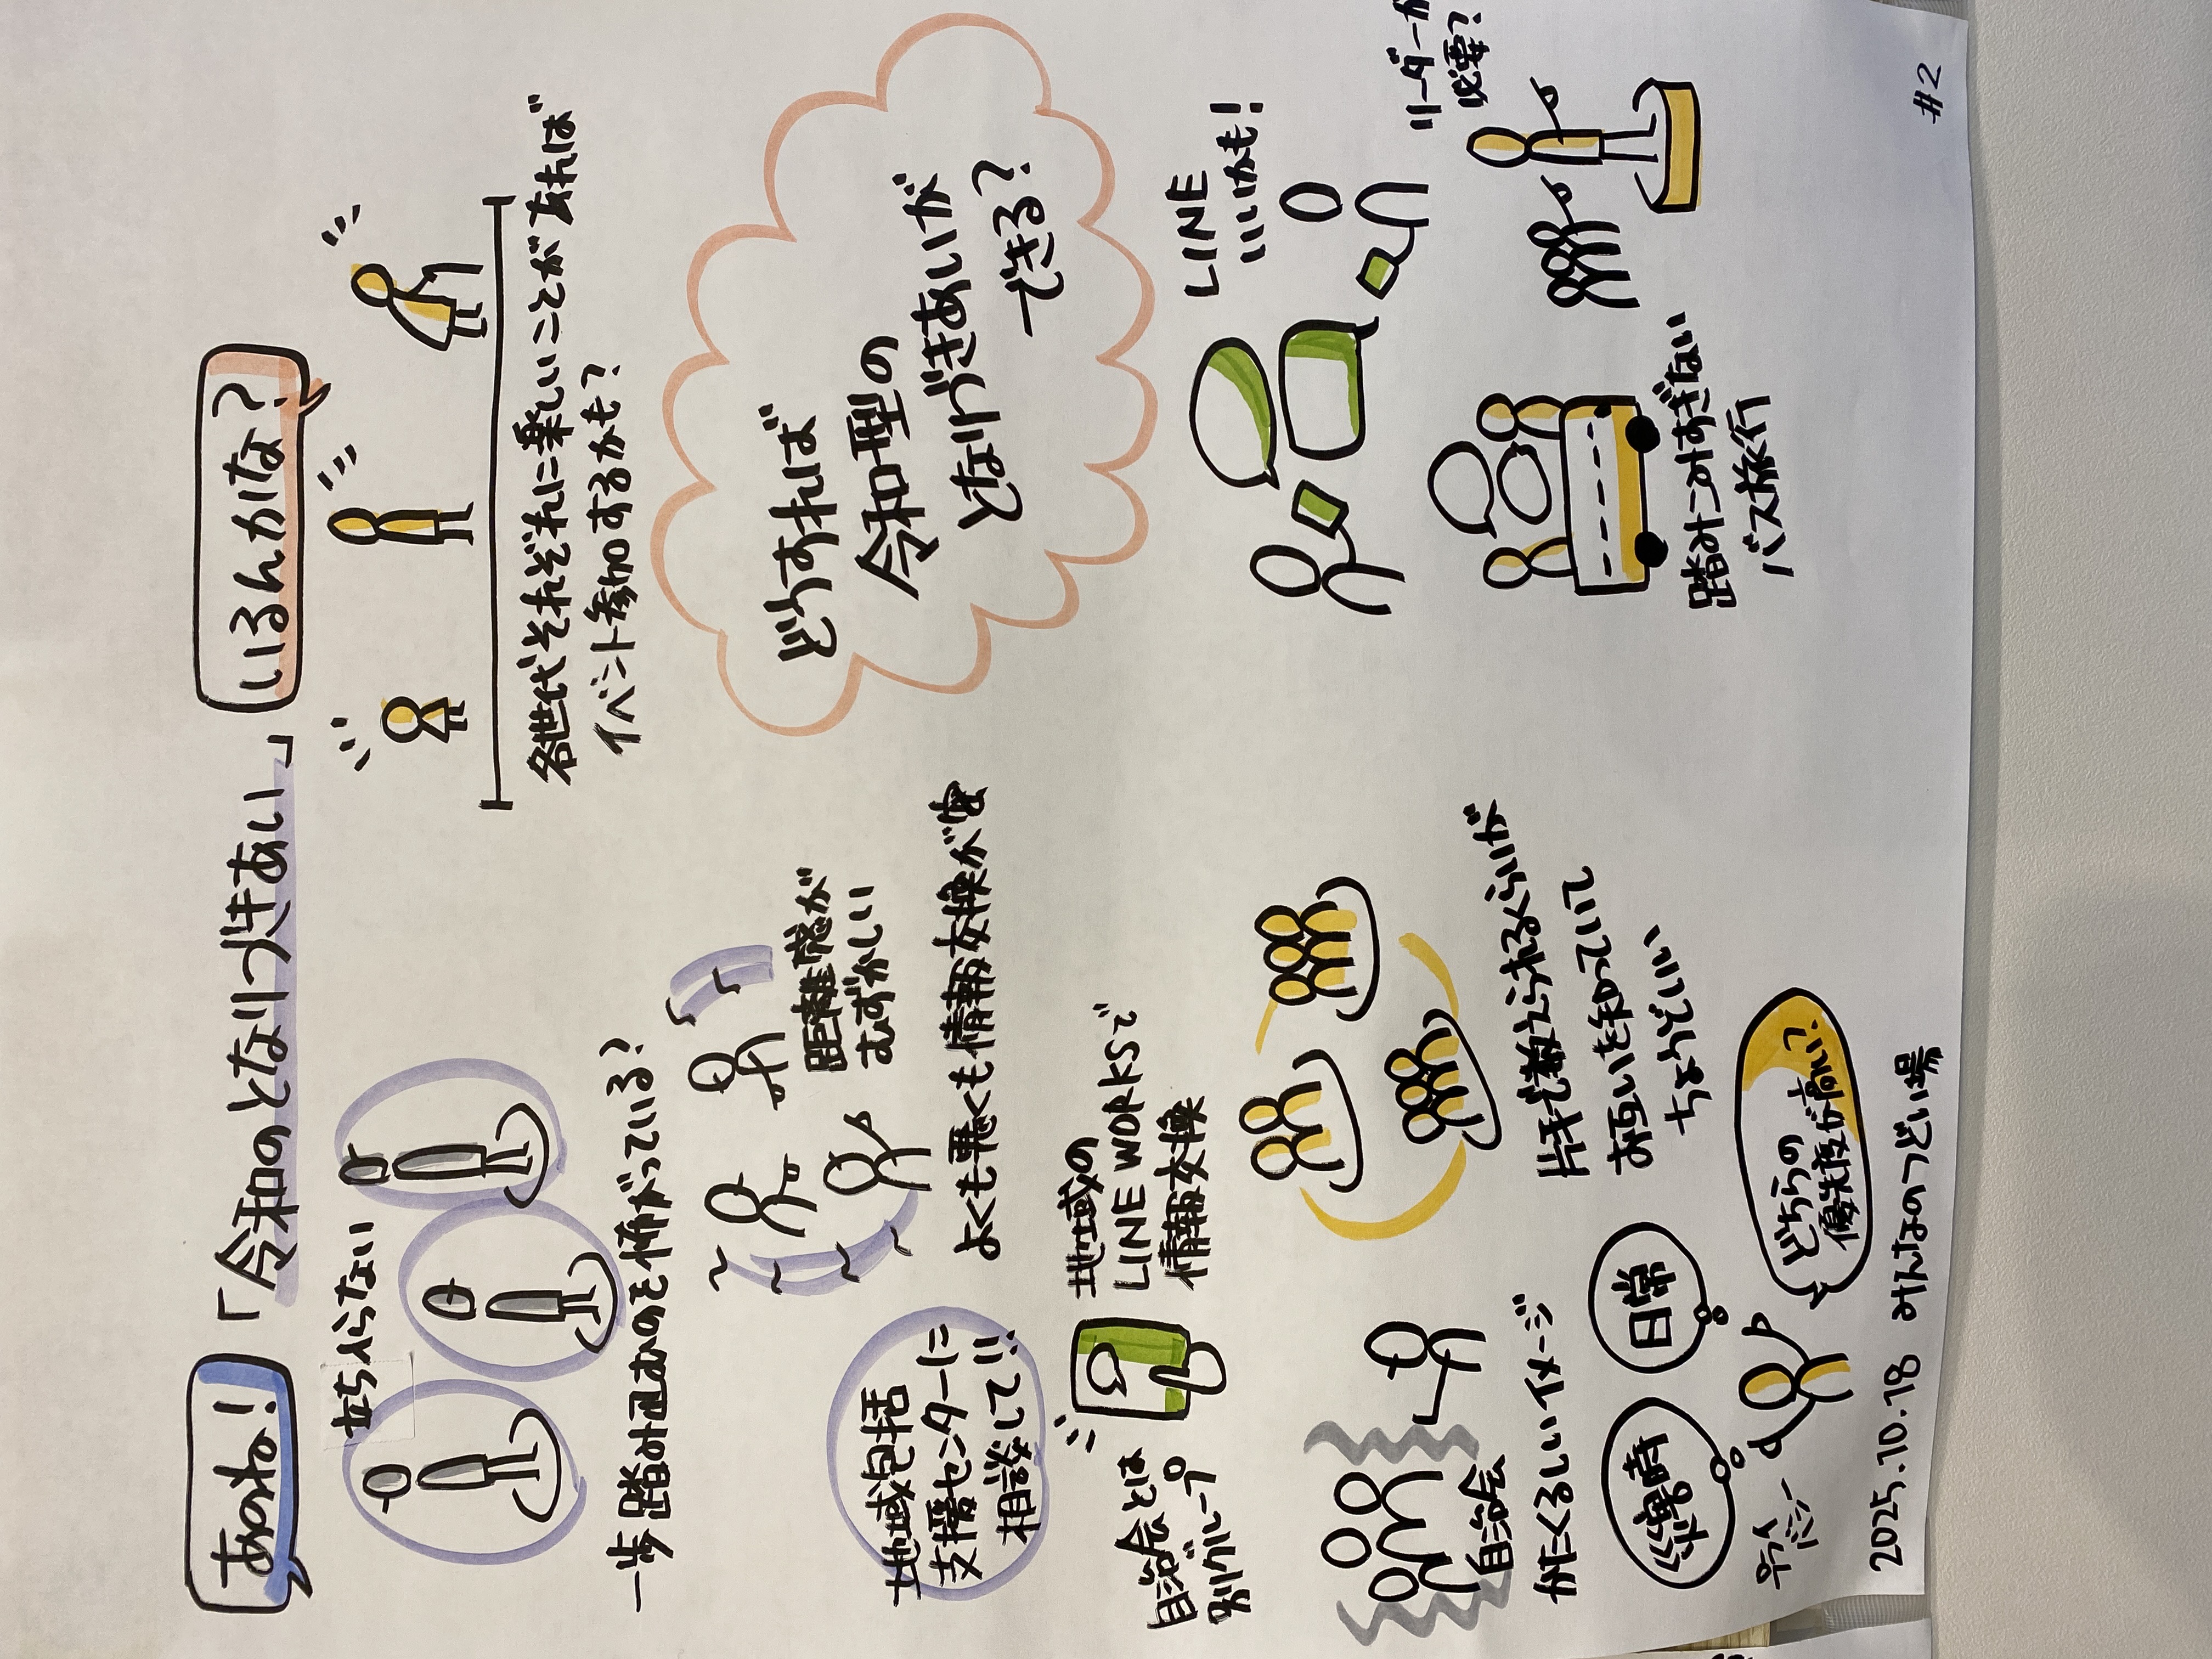 あのね!
「令和のとなりづきあい」
いるんかな?
立ち入らない
一歩踏み込むのを怖がっている?
距離感が
むずかしい
よくも悪くも情報交換が密
地域包括
支援センターに
相談して!!
自治会とは
別グループ
地域の
LINE WORKSで
情報交換
自治会
かたくるしいイメージ
片手で数えられるくらいが
お互いを知っていて
ちょうどいい
災害時
日常
どちらの
優先度が高い?
ワイ
ドン
各世代それぞれに楽しいことがあれば
イベント参加するかも?
どうすれば
令和型の
となりづきあいが
できる?
LINE
いいかも!
踏みこみすぎない
バス旅行
リーダーが
必要?
2025.10.18 みんなのつどい場
#2